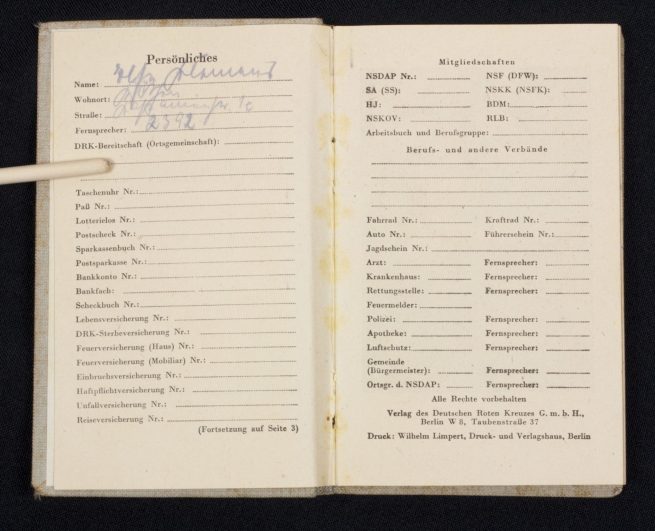 Persönliches
Name:
Wohnort:
Straße:
Fernsprecher: 2392
DRK-Bereitschaft (Ortsgemeinschaft):
Taschenuhr Nr.:
Paß Nr.:
Lotterielos Nr.:
Postscheck Nr.:
Sparkassenbuch Nr.:
Postsparkasse Nr.:
Bankkonto Nr.:
Bankfach:
Scheckbuch Nr.:
Lebensversicherung Nr.:
DRK-Sterbeversicherung Nr.:
Feuerversicherung (Haus) Nr.:
Feuerversicherung (Mobiliar) Nr.:
Einbruchsversicherung Nr.:
Haftpflichtversicherung Nr.:
Unfallversicherung Nr.:
Reiseversicherung Nr.:
(Fortsetzung auf Seite 3)
Mitgliedschaften
NSDAP Nr.: NSF (DFW):
SA (SS): NSKK (NSFK):
HJ: BDM:
NSKOV: RLB:
Arbeitsbuch und Berufsgruppe:
Berufs- und andere Verbände
Fahrrad Nr.: Kraftrad Nr.:
Auto Nr.: Führerschein Nr.:
Jagdschein Nr.:
Arzt: Fernsprecher:
Krankenhaus: Fernsprecher:
Rettungsstelle: Fernsprecher:
Feuermelder:
Polizei: Fernsprecher:
Apotheke: Fernsprecher:
Luftschutz: Fernsprecher:
Gemeinde
(Bürgermeister): Fernsprecher:
Ortsgr. d. NSDAP: Fernsprecher:
Alle Rechte vorbehalten
Verlag des Deutschen Roten Kreuzes G. m. b. H.,
Berlin W 8, Taubenstraße 37
Druck: Wilhelm Limpert, Druck- und Verlagshaus, Berlin